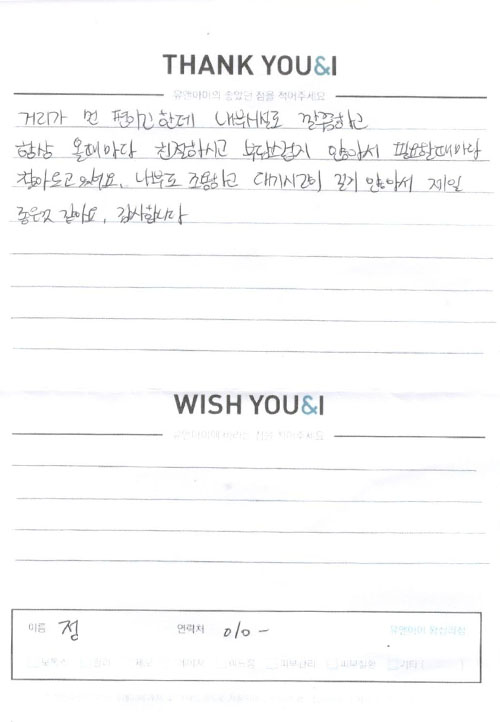 THANK YOU&I
유앤아이의 좋았던 점을 적어주세요
거리가 먼 편이긴한데 내부시설도 깔끔하고
항상 올때마다 친절하시고 부담스럽지 않아서 필요할때마다
찾아오고 있어요. 내부도 조용하고 대기시간이 길지 않아서 제일
좋은것 같아요. 감사합니다
WISH YOU&I
유앤아이에 바라는 점을 적어주세요
이름 정 연락처 010 - 유앤아이 왕십리점
제모 여드름 피부관리 피부질환 기타 ( )